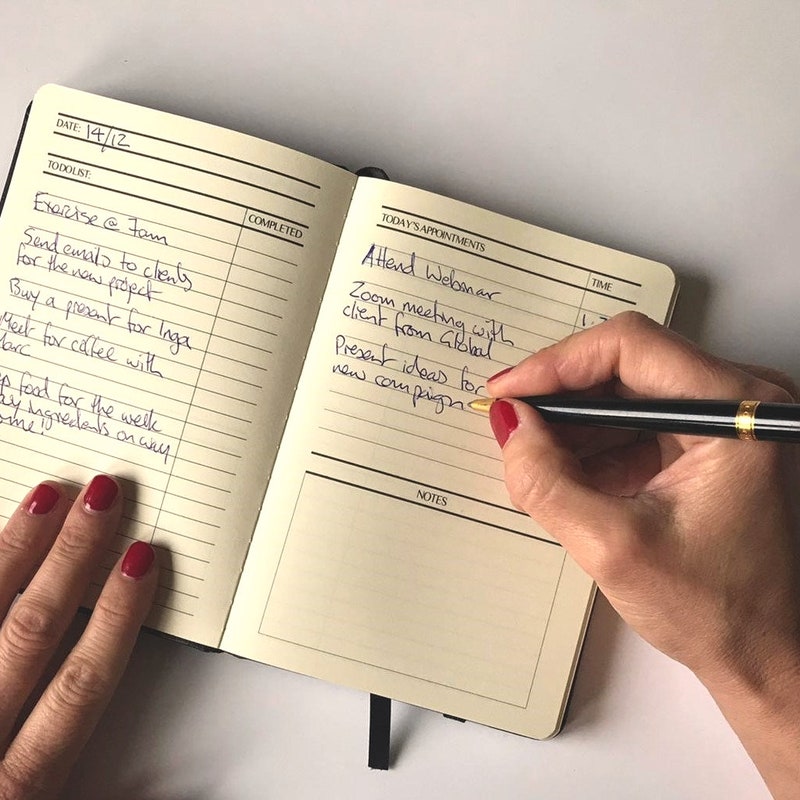 DATE: 14/12
TO DO LIST:
COMPLETED
Exercise @ 7am
Send emails to clients
for the new project
Buy a present for Inga
Meet for coffee with
food for the week
ingredients on way
TODAY'S APPOINTMENTS
TIME
Attend Webinar
Zoom meeting with
client from Global
Present ideas for
new campaign
NOTES